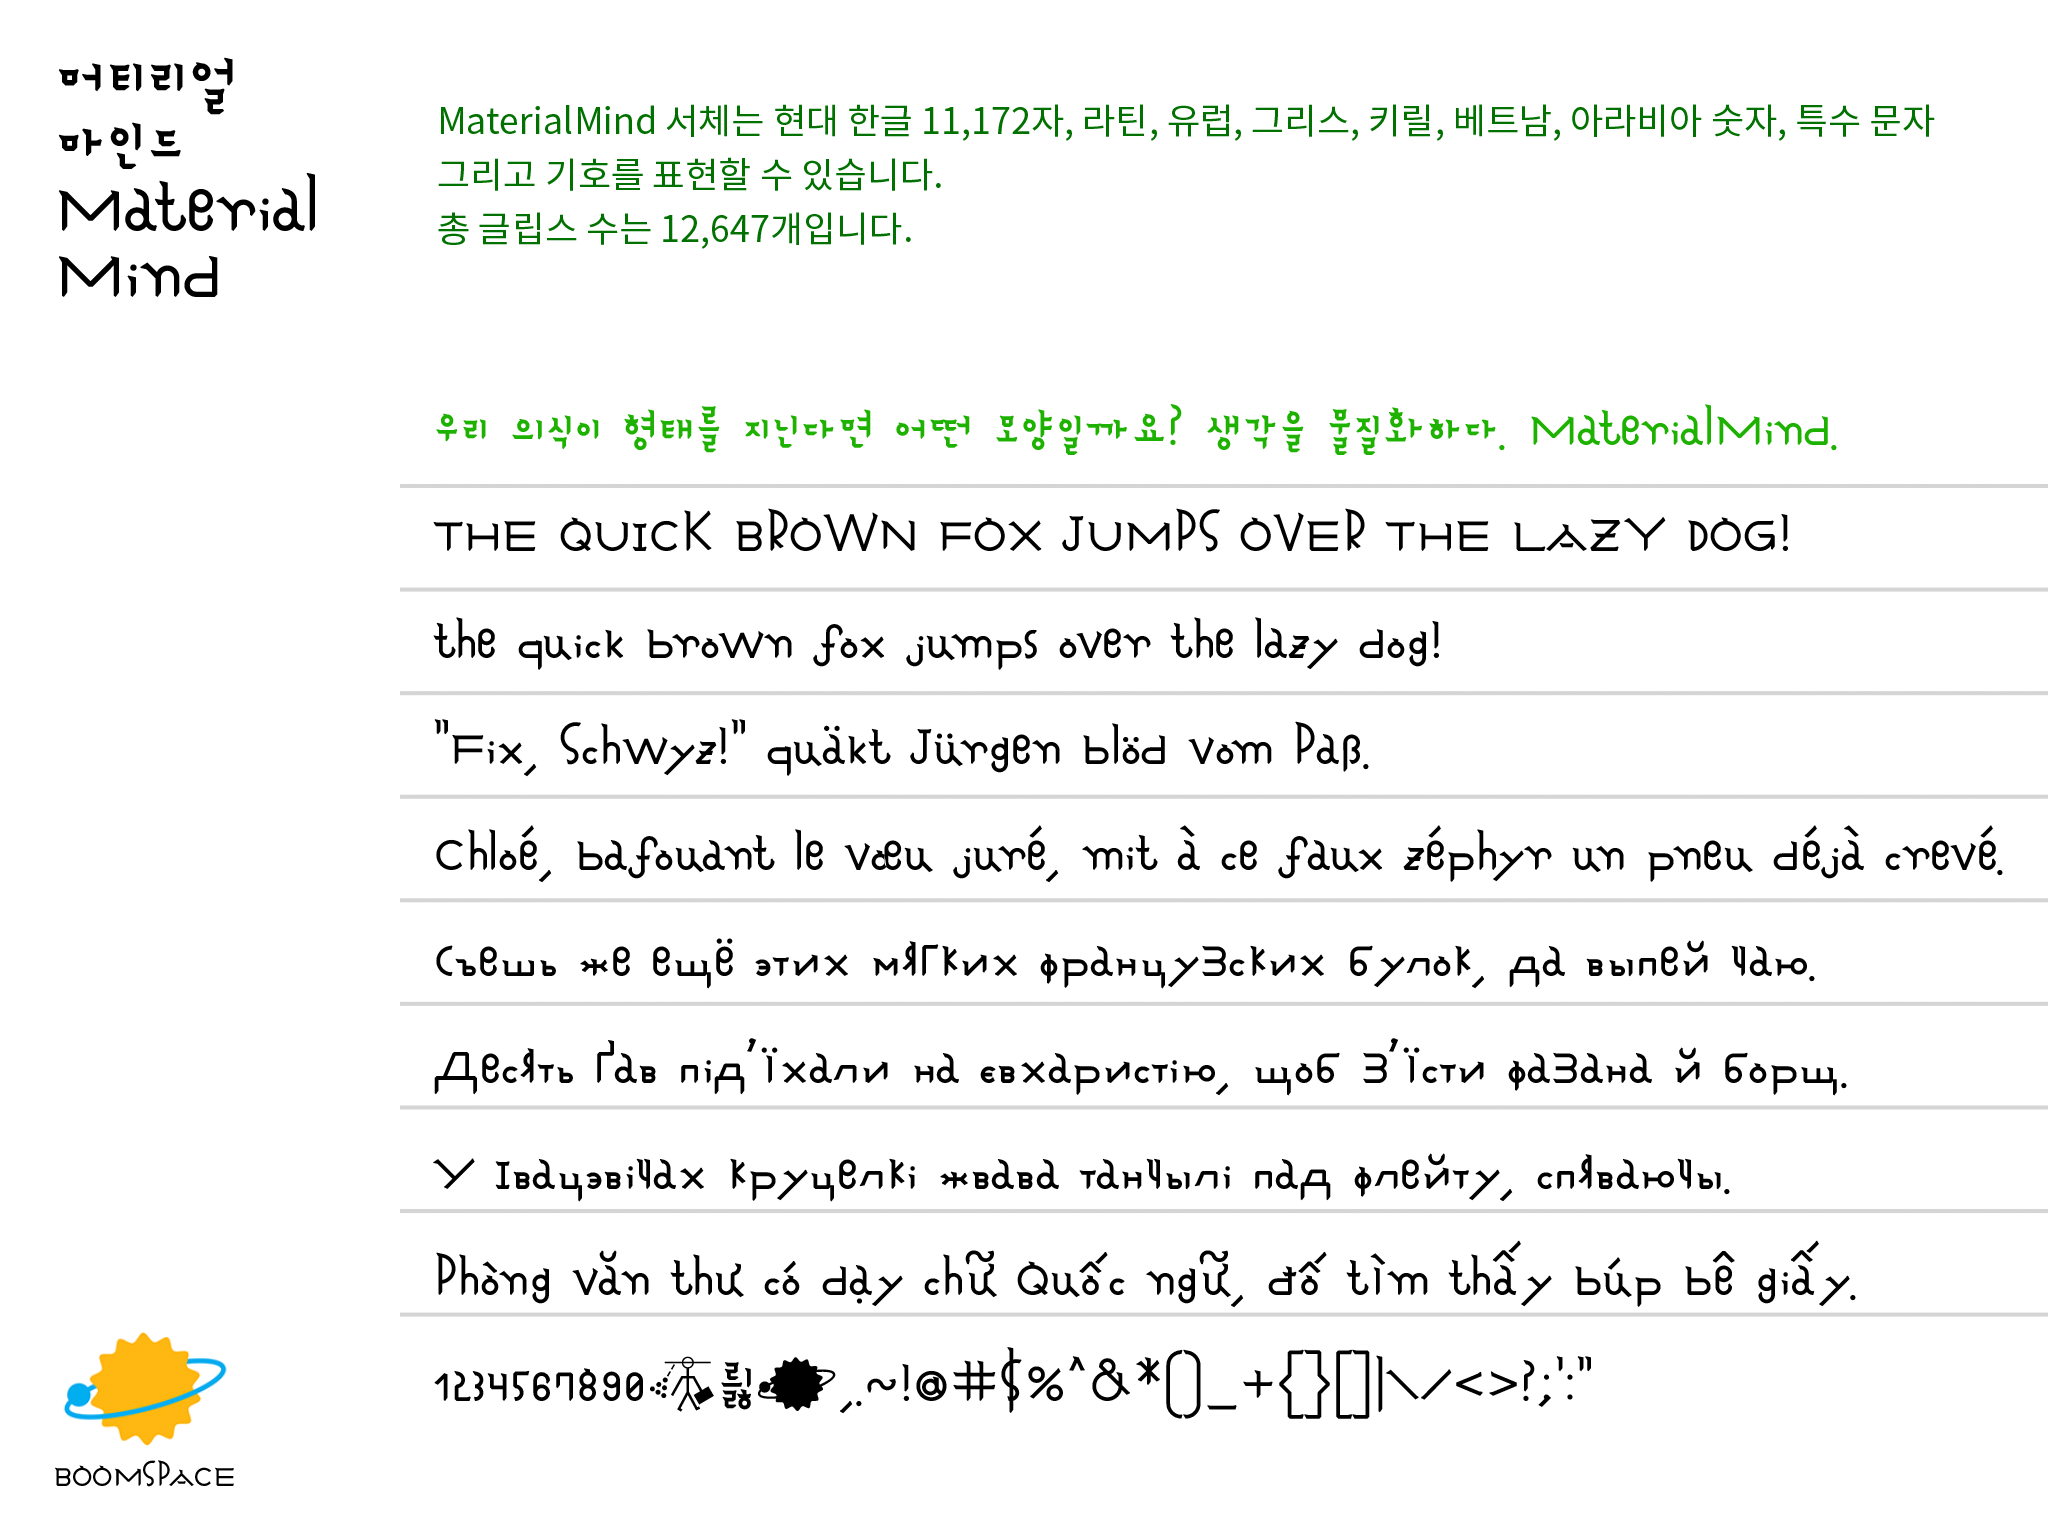 머티리얼
마인드
Material
Mind
MaterialMind 서체는 현대 한글 11,172자, 라틴, 유럽, 그리스, 키릴, 베트남, 아라비아 숫자, 특수 문자
그리고 기호를 표현할 수 있습니다.
총 글립스 수는 12,647개입니다.
우리 의식이 형태를 지닌다면 어떤 모양일까요? 생각을 물질화하다. MaterialMind.
THE QUICK BROWN FOX JUMPS OVER THE LAZY DOG!
the quick brown fox jumps over the lazy dog!
"Fix, Schwyz!" quäkt Jürgen blöd vom Paß.
Chloé, bafouant le vœu juré, mit à ce faux zéphyr un pneu déjà crevé.
Съешь же ещё этих мягких французских булок, да выпей чаю.
Десять ґав під'їхали на євхаристію, щоб з'їсти фазана й борщ.
У Івацэвічах круцелкі жвава танчылі пад флейту, спяваючы.
Phòng văn thư có dạy chữ Quốc ngữ, đố tìm thấy búp bê giấy.
1234567890 ,.~!@#$%^&*()_+{}[]|\/<>?;':"
BOOMSPACE